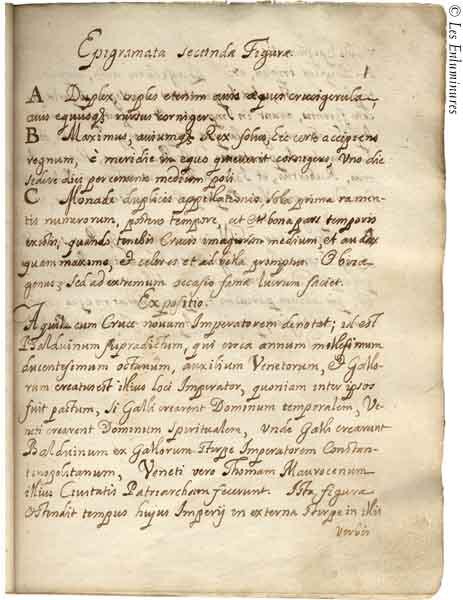 Epigramata secunda Figurae
A Duplex, triplex etenim avis aequi crucigerula
avis equusq; rursus corniger.
B Maximus, aviumq; Rex solus, hic certe accipiens
regnum, è meridie in equo quaeverit cornigero. Uno die
sedere dici percementa medium poli.
C Monade duplicis appellationis. sola prima ramen-
tis numerorum, postero tempore, et et bona pars temporis
existis, quando tenebis Crucis imaginem medium, et audax
quam maxime, et celer es et ad bella promptus.
genus; sed ad extremum occasio fama lucrum faciet.
Expositio.
Aquila cum Cruce novum Imperatorem denotat; id est
Balduinum supradictum, qui circa annum millesimum
ducentesimum octavum, auxilium Venetorum, et Gallo-
rum creatus est illius loci Imperator, quoniam inter ipsos
fuit pactum, si Galli crearent Dominum temporalem, Ve-
neti crearent Dominum spiritualem, unde Galli crearunt
Balduinum ex Gallorum stirpe Imperatorem Constan-
tinopolitanum, Veneti vero Thomam Maurocenum
illius Civitatis Patriarcham fecerunt. Ista figura
ostendit tempus hujus Imperij in externa stirpe in illis
verbis
© Les Enluminures